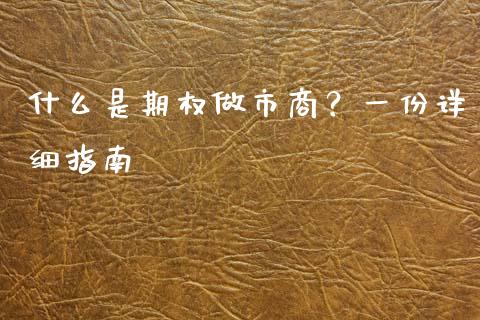 什么是期权做市商？一份详
细指南